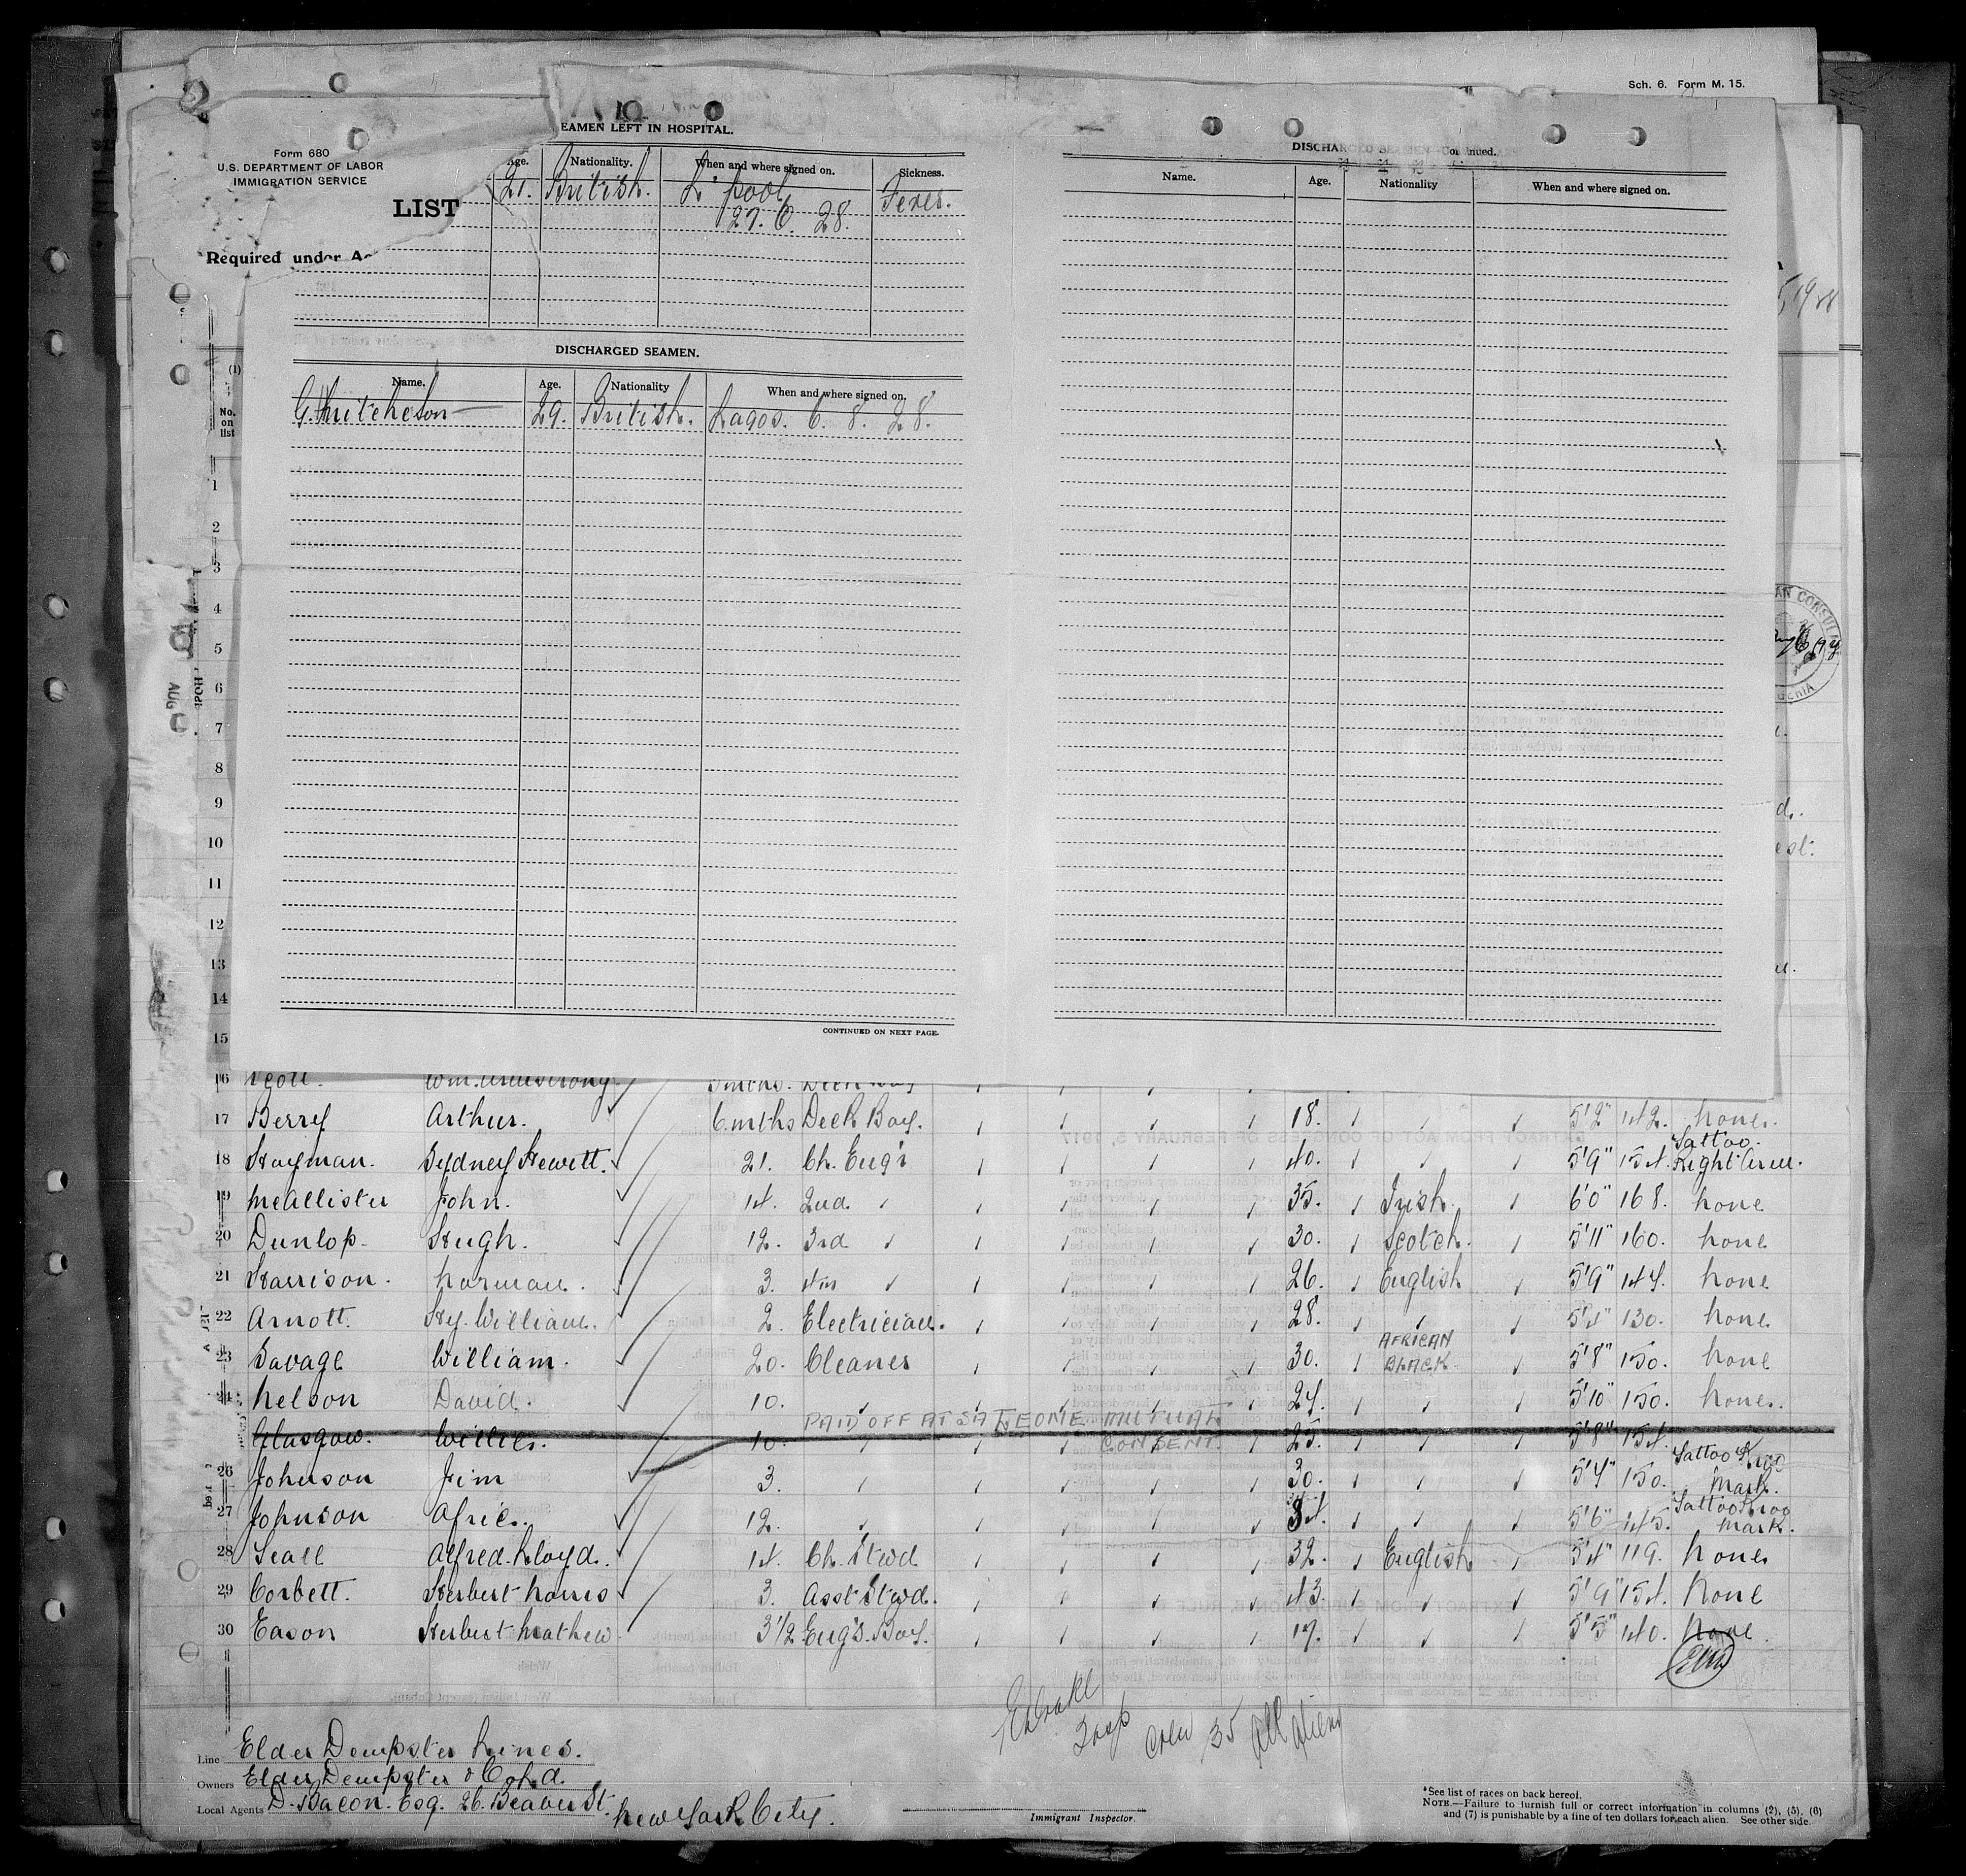 Sch. 6. Form M. 15.
SEAMEN LEFT IN HOSPITAL.
Form 680
U.S. DEPARTMENT OF LABOR
IMMIGRATION SERVICE
LIST
Required under
Age. Nationality. When and where signed on. Sickness.
21. British. L'pool 27. 6. 28. Fever.
DISCHARGED SEAMEN.
Name. Age. Nationality When and where signed on.
29. British. Lagos. 6. 8. 28.
CONTINUED ON NEXT PAGE.
DISCHARGED SEAMEN Continued.
Name. Age. Nationality When and where signed on.
(1)
No. on list
1
2
3
4
5
6
7
8
9
10
11
12
13
14
15
AUG
16
17 Berry Arthur. 6 mths Deck Boy. 18. 5'2" 142. None.
18 Hayman. Sydney Hewitt. 21. Ch. Eng'r 40. 5'9" 154. Tattoo. Right Arm.
19 McAllister John. 14. 2nd 35. Irish 6'0" 168. None
20 Dunlop Hugh. 12. 3rd 30. Scotch. 5'11" 160. None
21 Harrison. Norman. 3. 4th 26. English 5'9" None
22 Arnott. Hy. William. 2. Electrician. 28. 5'4" 130. None
23 Savage William. 20. Cleaner 30. AFRICAN BLACK 5'8" 150. None
24 Nelson David. 10. 24. 5'10" 150. None.
PAID OFF AT SA LEONE MUTUAL CONSENT.
Glasgow. Willie. 10. 25. 5'8" 154.
26 Johnson Jim 3. 30. 5'4" 150. Tattoo Kroo Mark.
27 Johnson 12. 34. 5'6" 145. Tattoo Kroo Mark.
28 Alfred Lloyd. 14. Ch. Stwd 32. English 5'4" 119. None
29 Corbett. Herbert Norris 3. Asst Stwd. 43. 5'9" 154. None
30 Eason Herbert Mathew 3 1/2 Eng's. Boy. 17. 5'5" 140. None.
Crew 35 All Aliens
Line Elder Dempster Lines.
Owners Elder Dempster & Co Ltd.
Local Agents D. Bacon. Esq. 26. Beaver St. New York City.
Immigrant Inspector.
*See list of races on back hereof.
NOTE.—Failure to furnish full or correct information in columns (2), (5), (6)
and (7) is punishable by a fine of ten dollars for each alien. See other side.